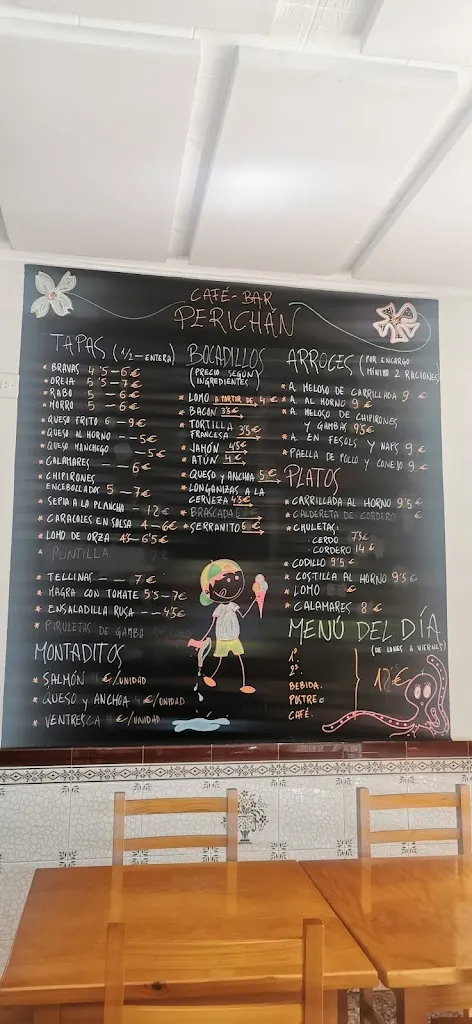 CAFÉ-BAR
PERICHÁN
TAPAS (1/2 - ENTERA)
* BRAVAS 4'5 - 6 €
* OREJA 5'5 - 7 €
* RABO 5 - 6 €
* MORRO 5 - 6 €
* QUESO FRITO 6 - 9 €
* QUESO AL HORNO -- 5 €
* QUESO MANCHEGO -- 5 €
* CALAMARES -- 6 €
* CHIPIRONES
ENCEBOLLADOS 5 - 7 €
* SEPIA A LA PLANCHA - 12 €
* CARACOLES EN SALSA 4 - 6 €
* LOMO DE ORZA 4'5 - 6'5 €
* PUNTILLA
* TELLINAS -- 7 €
* MAGRA CON TOMATE 5'5 - 7 €
* ENSALADILLA RUSA -- 4'5 €
* PIRULETAS DE GAMBA
MONTADITOS
* SALMÓN €/UNIDAD
* QUESO y ANCHOA €/UNIDAD
* VENTRESCA €/UNIDAD
BOCADILLOS
(PRECIO SEGÚN
INGREDIENTES)
* LOMO A PARTIR DE 4 €
* BACON 3'5 €
* TORTILLA
FRANCESA 3'5 €
* JAMÓN 4'5 €
* ATÚN 4 €
* QUESO y ANCHOA 5 €
* LONGANIZAS A LA
CERVEZA 4'5 €
* BRASCADA 6 €
* SERRANITO 6 €
ARROCES (POR ENCARGO
MÍNIMO 2 RACIONES)
* A. MELOSO DE CARRILLADA 9 €
* A. AL HORNO 9 €
* A. MELOSO DE CHIPIRONES
y GAMBAS 9'5 €
* A. EN FESOLS Y NAPS 9 €
* PAELLA DE POLLO Y CONEJO 9 €
PLATOS
* CARRILLADA AL HORNO 9'5 €
* CALDERETA DE CORDERO €
* CHULETAS:
- CERDO 7'5 €
- CORDERO 14 €
* CODILLO 9'5 €
* COSTILLA AL HORNO 9'5 €
* LOMO €
* CALAMARES 8 €
MENÚ DEL DÍA
(DE LUNES A VIERNES)
1º
2º
BEBIDA.
POSTRE o
CAFÉ.
€